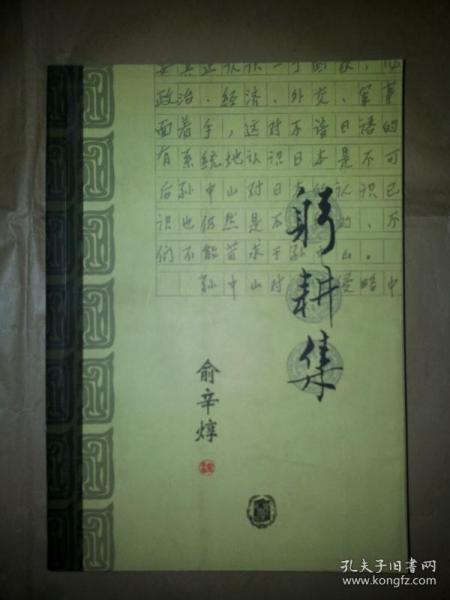 政治、经济、外交、军事
面着手，这对不谙日语的
有系统地认识日本是不可
后孙中山对日本的认识已
识也仍然是不
的、不
们不能苛求于孙中山。
孙中山对
侵略中
躬耕集
俞辛焞
孔夫子旧书网
www.kongfz.com